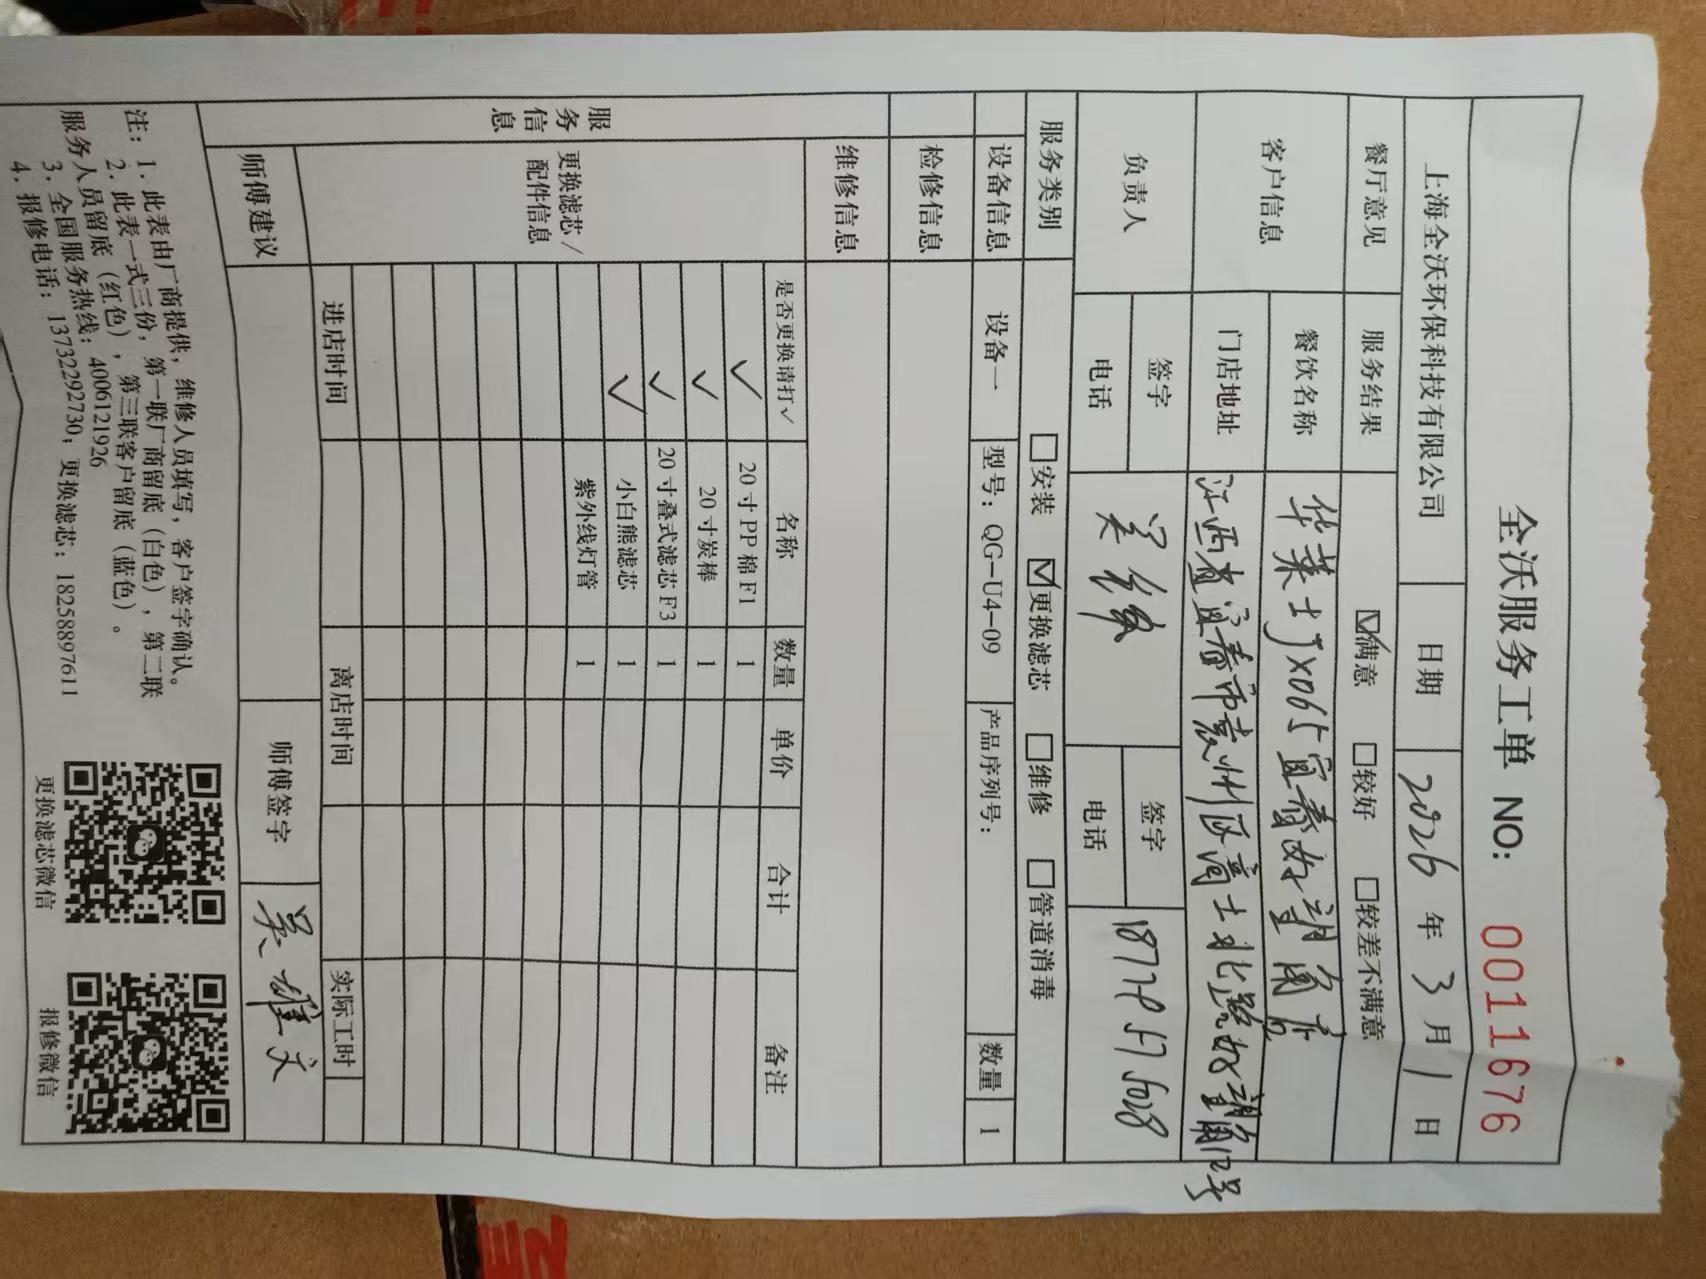 全沃服务工单 NO: 0011676
上海全沃环保科技有限公司 日期 2026 年 3 月 1 日
餐厅意见 服务结果 ☑满意 □较好 □较差不满意
客户信息 餐饮名称 华莱士JX065宜春
门店地址 江西省宜春市袁州区高士北路 12号
负责人 签字 签字
电话 电话
服务类别 □安装 ☑更换滤芯 □维修 □管道消毒
设备信息 设备一 型号：QG-U4-09 产品序列号： 数量 1
检修信息
维修信息
服务信息
更换滤芯/配件信息
是否更换请打✓ 名称 数量 单价 合计 备注
✓ 20寸PP棉F1 1
✓ 20寸炭棒 1
✓ 20寸叠式滤芯F3 1
✓ 小白熊滤芯 1
紫外线灯管 1
进店时间 离店时间 实际工时
师傅建议 师傅签字 吴雄文
注：1. 此表由厂商提供，维修人员填写，客户签字确认。
2. 此表一式三份，第一联厂商留底（白色），第二联
服务人员留底（红色），第三联客户留底（蓝色）。
3. 全国服务热线：4006121926
4. 报修电话：13732292730；更换滤芯：18258897611
更换滤芯微信 报修微信